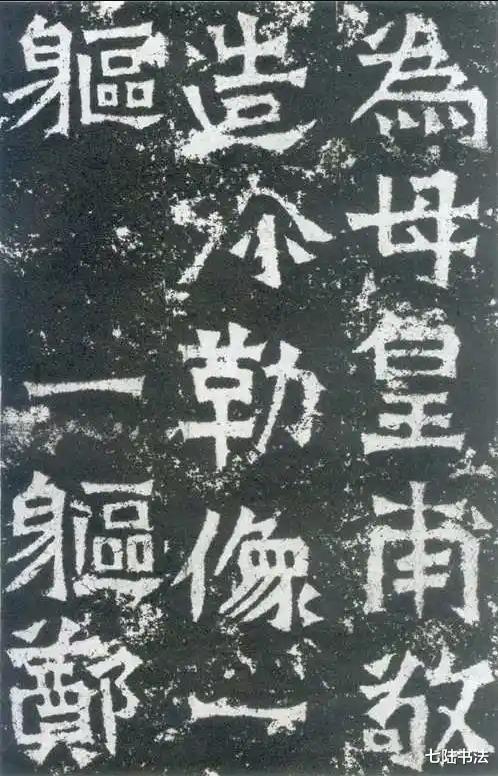 為母皇甫敬
造弥勒像一
軀 一軀鄭
七陆书法